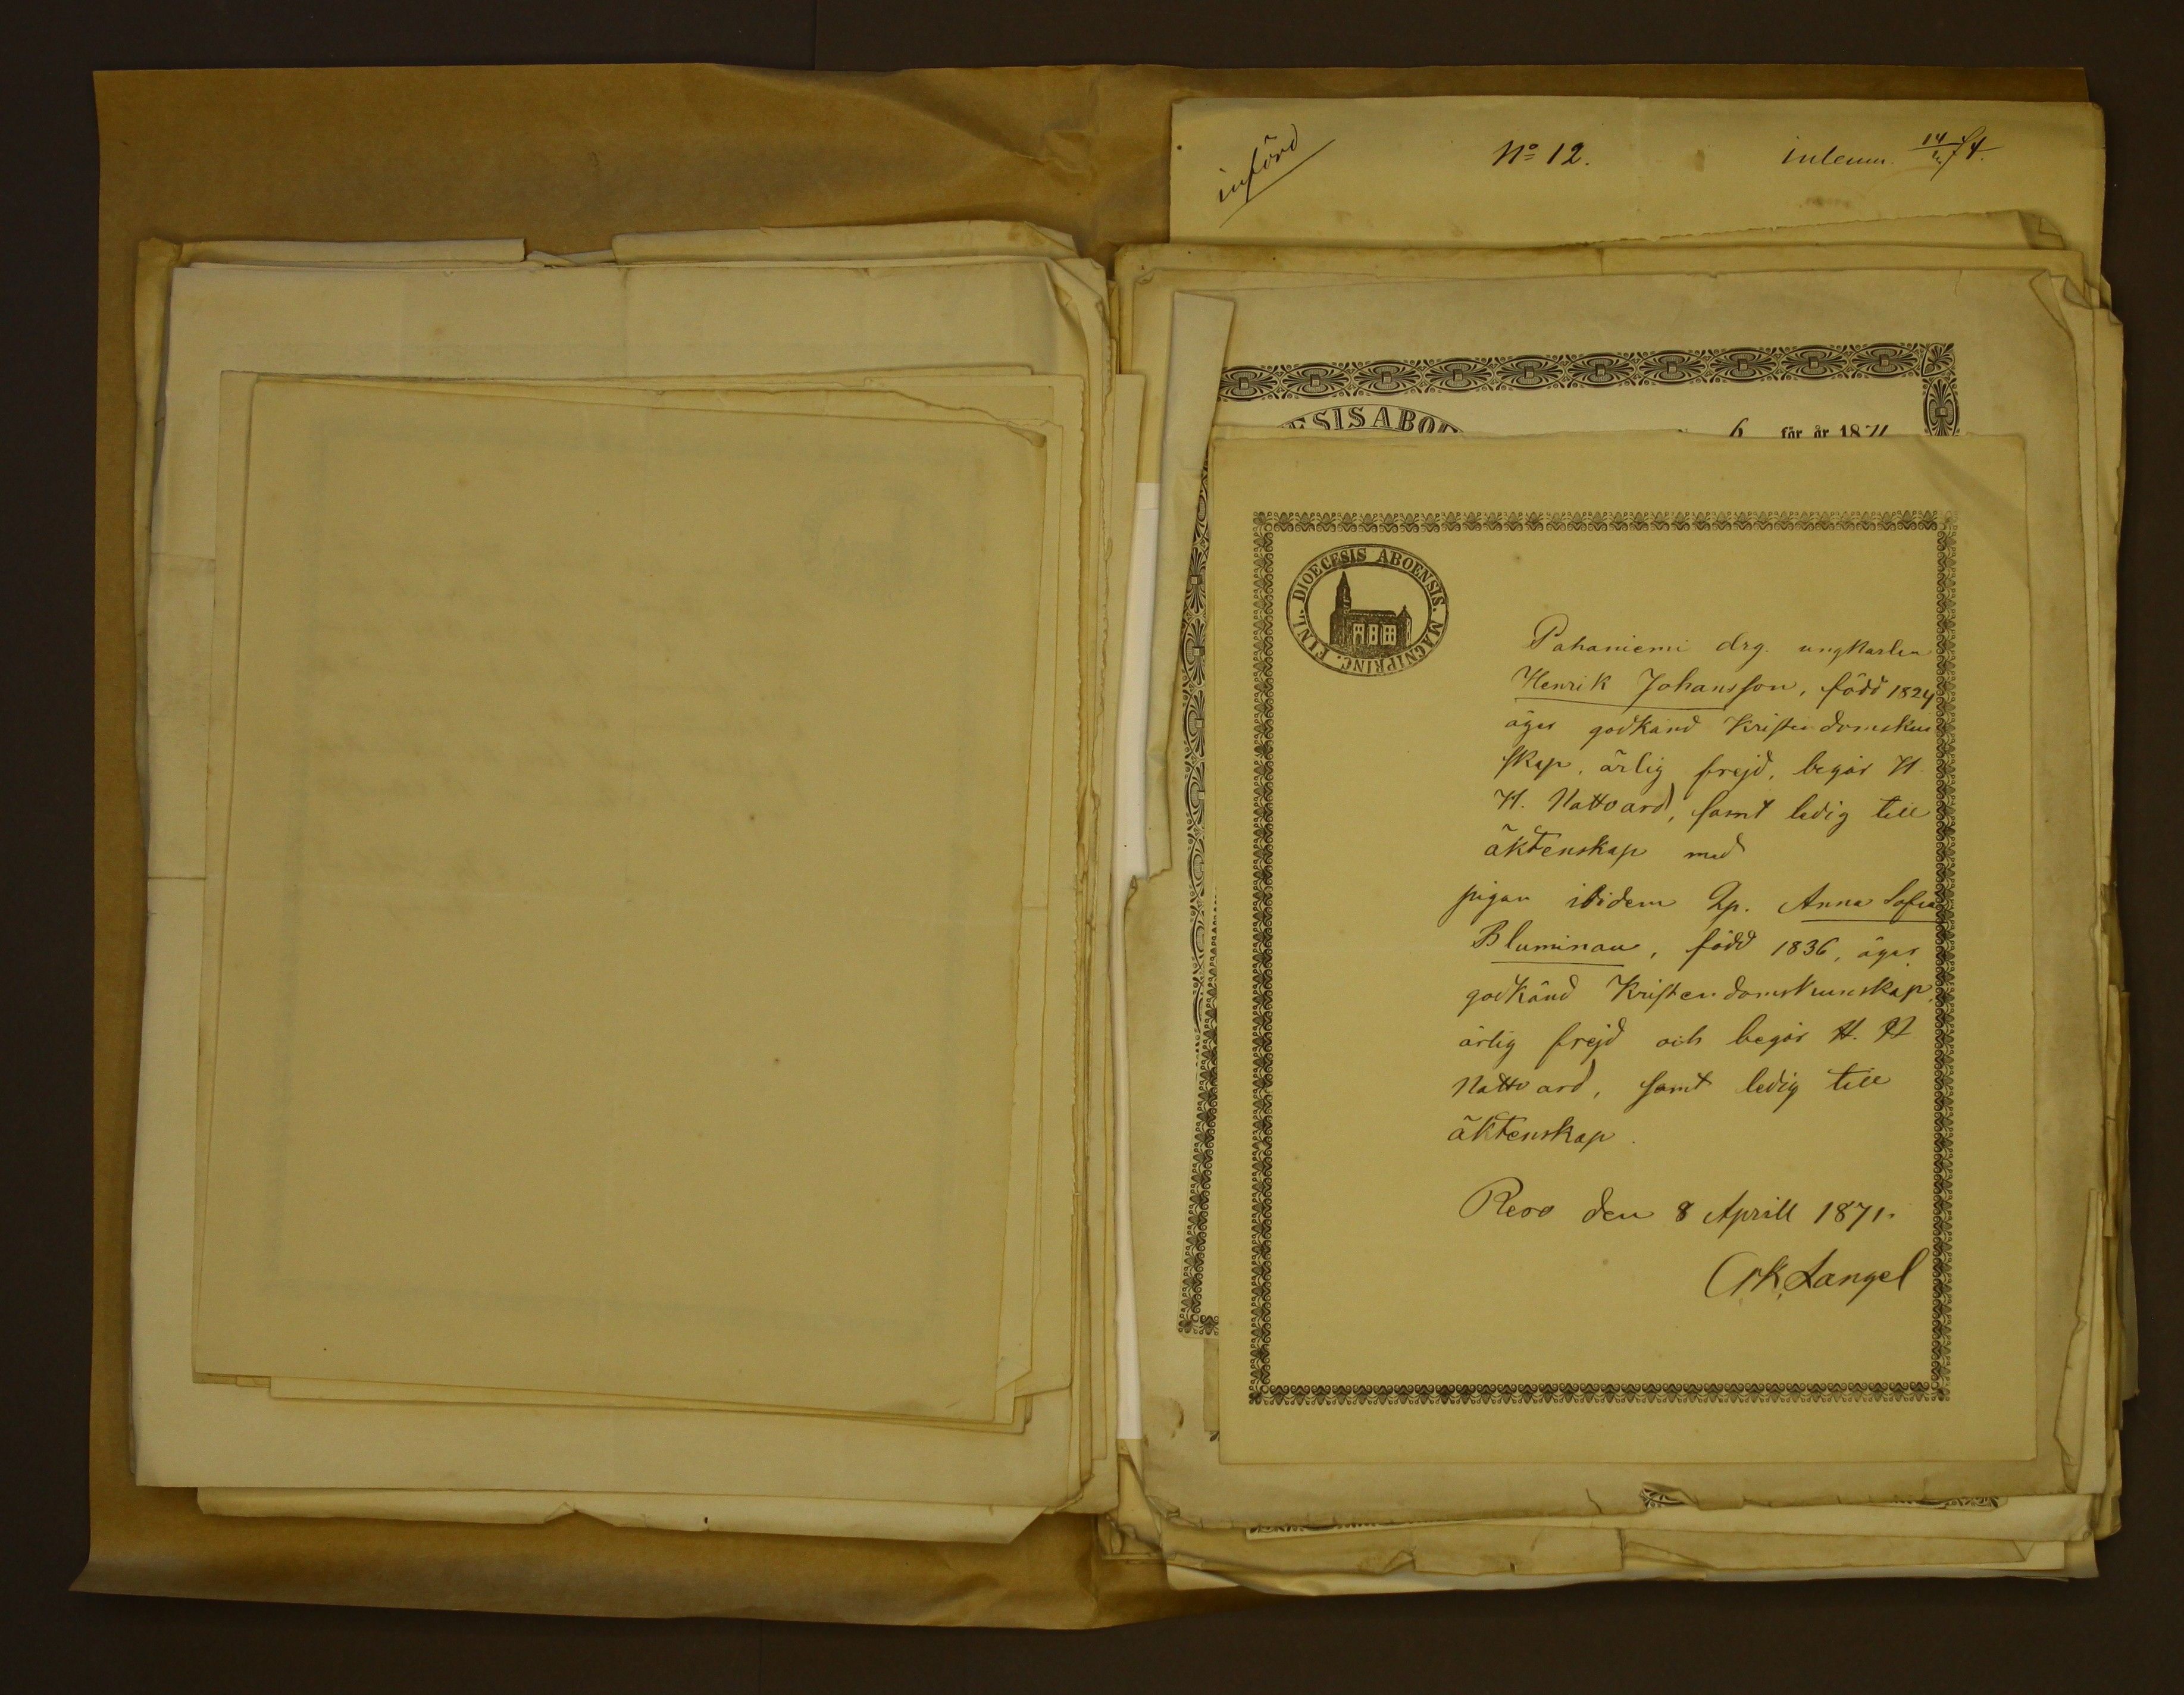 införd
No 12.
inlemn. 14/4 74.
ESIS ABOE
6 för år 1871
DIOECESIS ABOENSIS. MAGNIPRINC. FINL.
Pahaniemi drg. ungkarlen
Henrik Johansson, född 1824
äger godkänd Kristendomskun
skap, ärlig frejd, begår H.
H. Nattvard, samt ledig till
äktenskap med
pigan ibidem Qp. Anna Sofia
Bluminau, född 1836, äger
godkänd Kristendomskunskap,
ärlig frejd och begår H. H
Nattvard, samt ledig till
äktenskap.
Reso den 8 Aprill 1871.
Langel